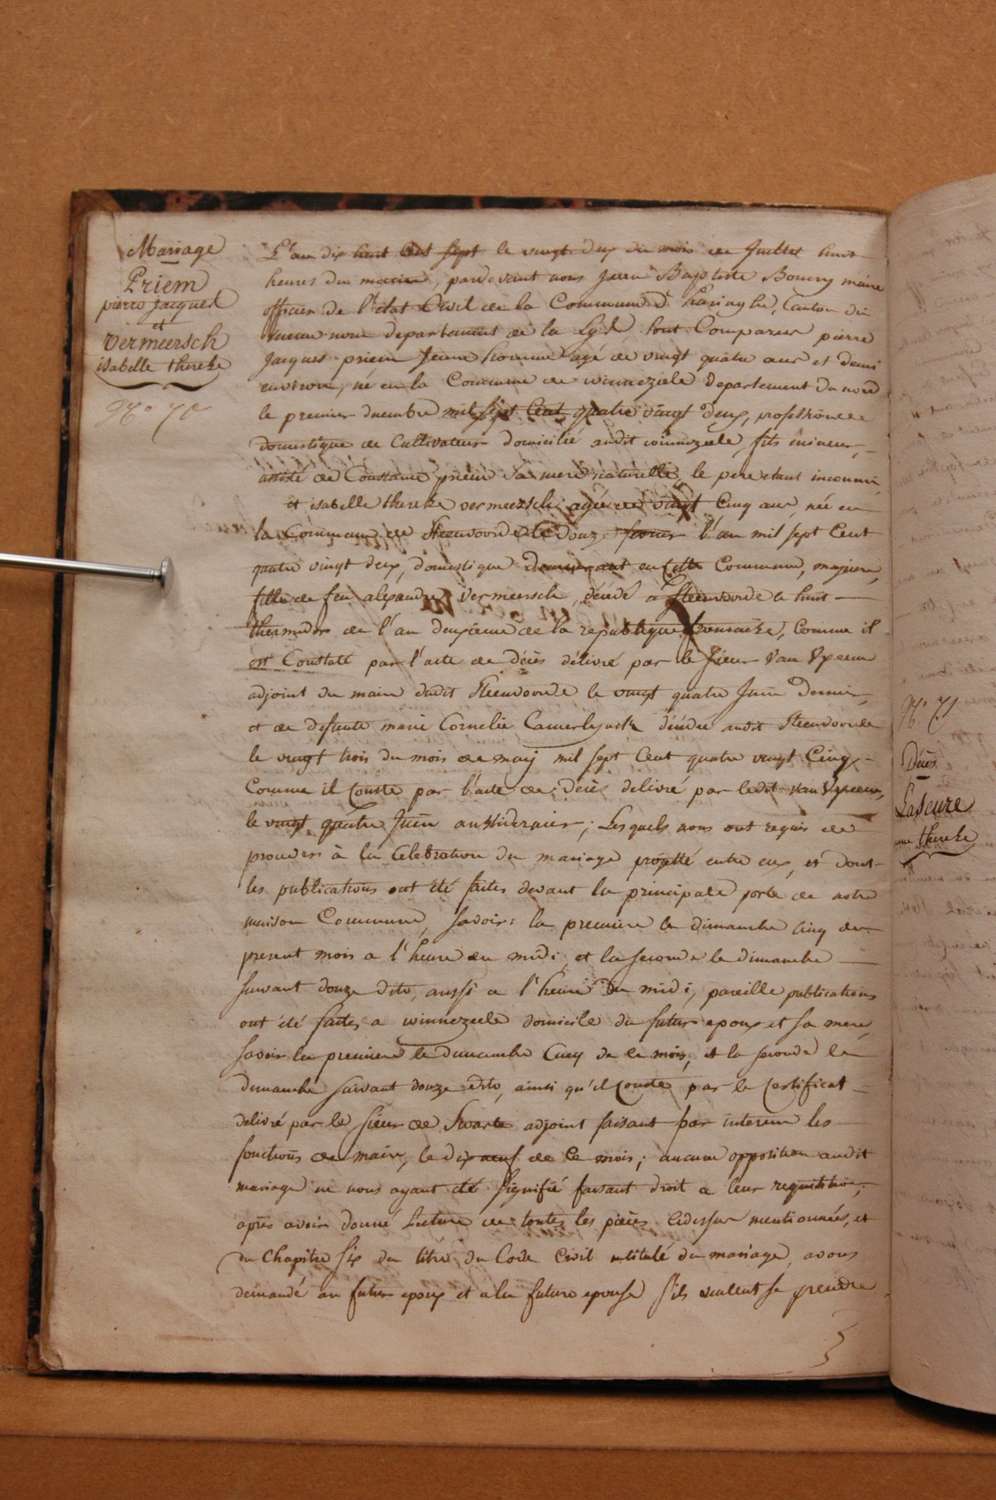 Mariage
Priem
pierre jacques
et
Vermeersch
isabelle thereke
N.° 70
L'an dix huit cent sept le vingt deux du mois de Juillet huit
heures du matin, pardevant nous jean Baptiste Bourry maire
officier de l'état Civil de la Commune d' haringhe, Canton de
departement de la Lys, sont Comparus pierre
Jacques priem jeune homme agé de vingt quatre ans et demi
environ, né en la Commune de winnezeele departement du nord
le premier decembre mil sept Cent quatre vingt deux, profession de
domestique de Cultivateur domicilié audit winnezeele, fils mineur,
assisté de Constance priem sa mere naturelle, le pere etant inconnu,
et isabelle thereke vermeersch, agée de vingt Cinq ans, née en
la Commune de Steenvoorde le douze fevrier l'an mil sept Cent
quatre vingt deux, domestique demeurant en Cette Commune, majeure,
fille de feu alexandre Vermeersch, décédé à Steenvoorde le huit
thermidor de l'an deuxieme de la republique francaise, Comme il
est Constaté par l'acte de décès délivré par le Sieur Van Upeene
adjoint du maire dudit Steenvoorde le vingt quatre Juin dernier,
et de defunte marie Cornelie Camerlynck décédée audit Steenvoorde
le vingt trois du mois de maij mil sept Cent quatre vingt Cinq
Comme il Conste par l'acte de décès delivré par ledit van Upeene,
le vingt quatre Juin aussi dernier; Lesquels nous ont requis de
proceder à la Celebration du mariage projetté entre eux, et dont
les publications ont été faites devant la principale porte de notre
maison Commune, Savoir: la premiere le dimanche cinq du
present mois a l'heure de midi, et la seconde le dimanche
suivant douze dito, aussi a l'heure de midi, pareille publications
ont été faites a winnezeele domicile du futur epoux et sa mere,
savoir la premiere le dimanche Cinq de ce mois, et la seconde le
dimanche suivant douze dito, ainsi qu'il Conste par le Certificat
delivré par le sieur de Swarte adjoint faisant par interim les
fonctions de maire, le dix neuf de ce mois; aucune opposition audit
mariage ne nous ayant été signifié faisant droit a leur requisition,
après avoir donné lecture de toutes les pièces cidessus mentionnées, et
du Chapitre six du titre du Code Civil intitulé du mariage, avons
demandé au futur epoux et a la future epouse s'ils veulent se prendre
N.° 71
Décès
Laseure
thereke